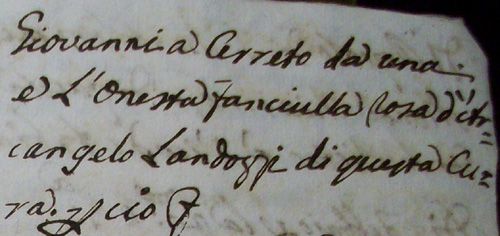 Giovanni a Cerreto da una
e L'Onesta fanciulla Rosa d'Ar=
cangelo Landozzi di questa Cu=
ra.